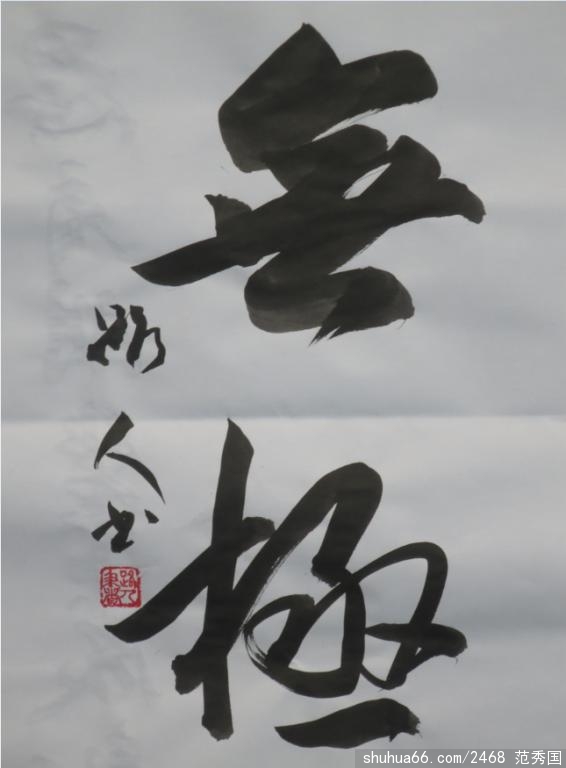 無極
路人书
shuhua66.com/2468 范秀国